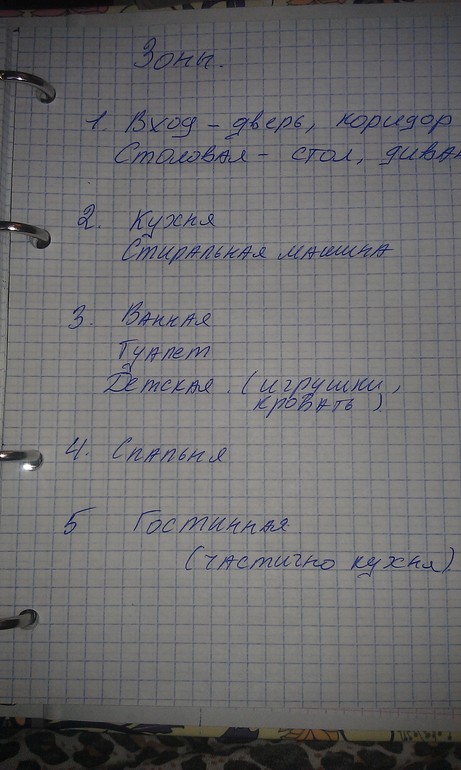 Зоны.
1. Вход – дверь, коридор
Столовая – стол, диван
2. Кухня
Стиральная машина
3. Ванная
Туалет
Детская. (игрушки,
кровать)
4. Спальня
5 Гостинная
(частично кухня)